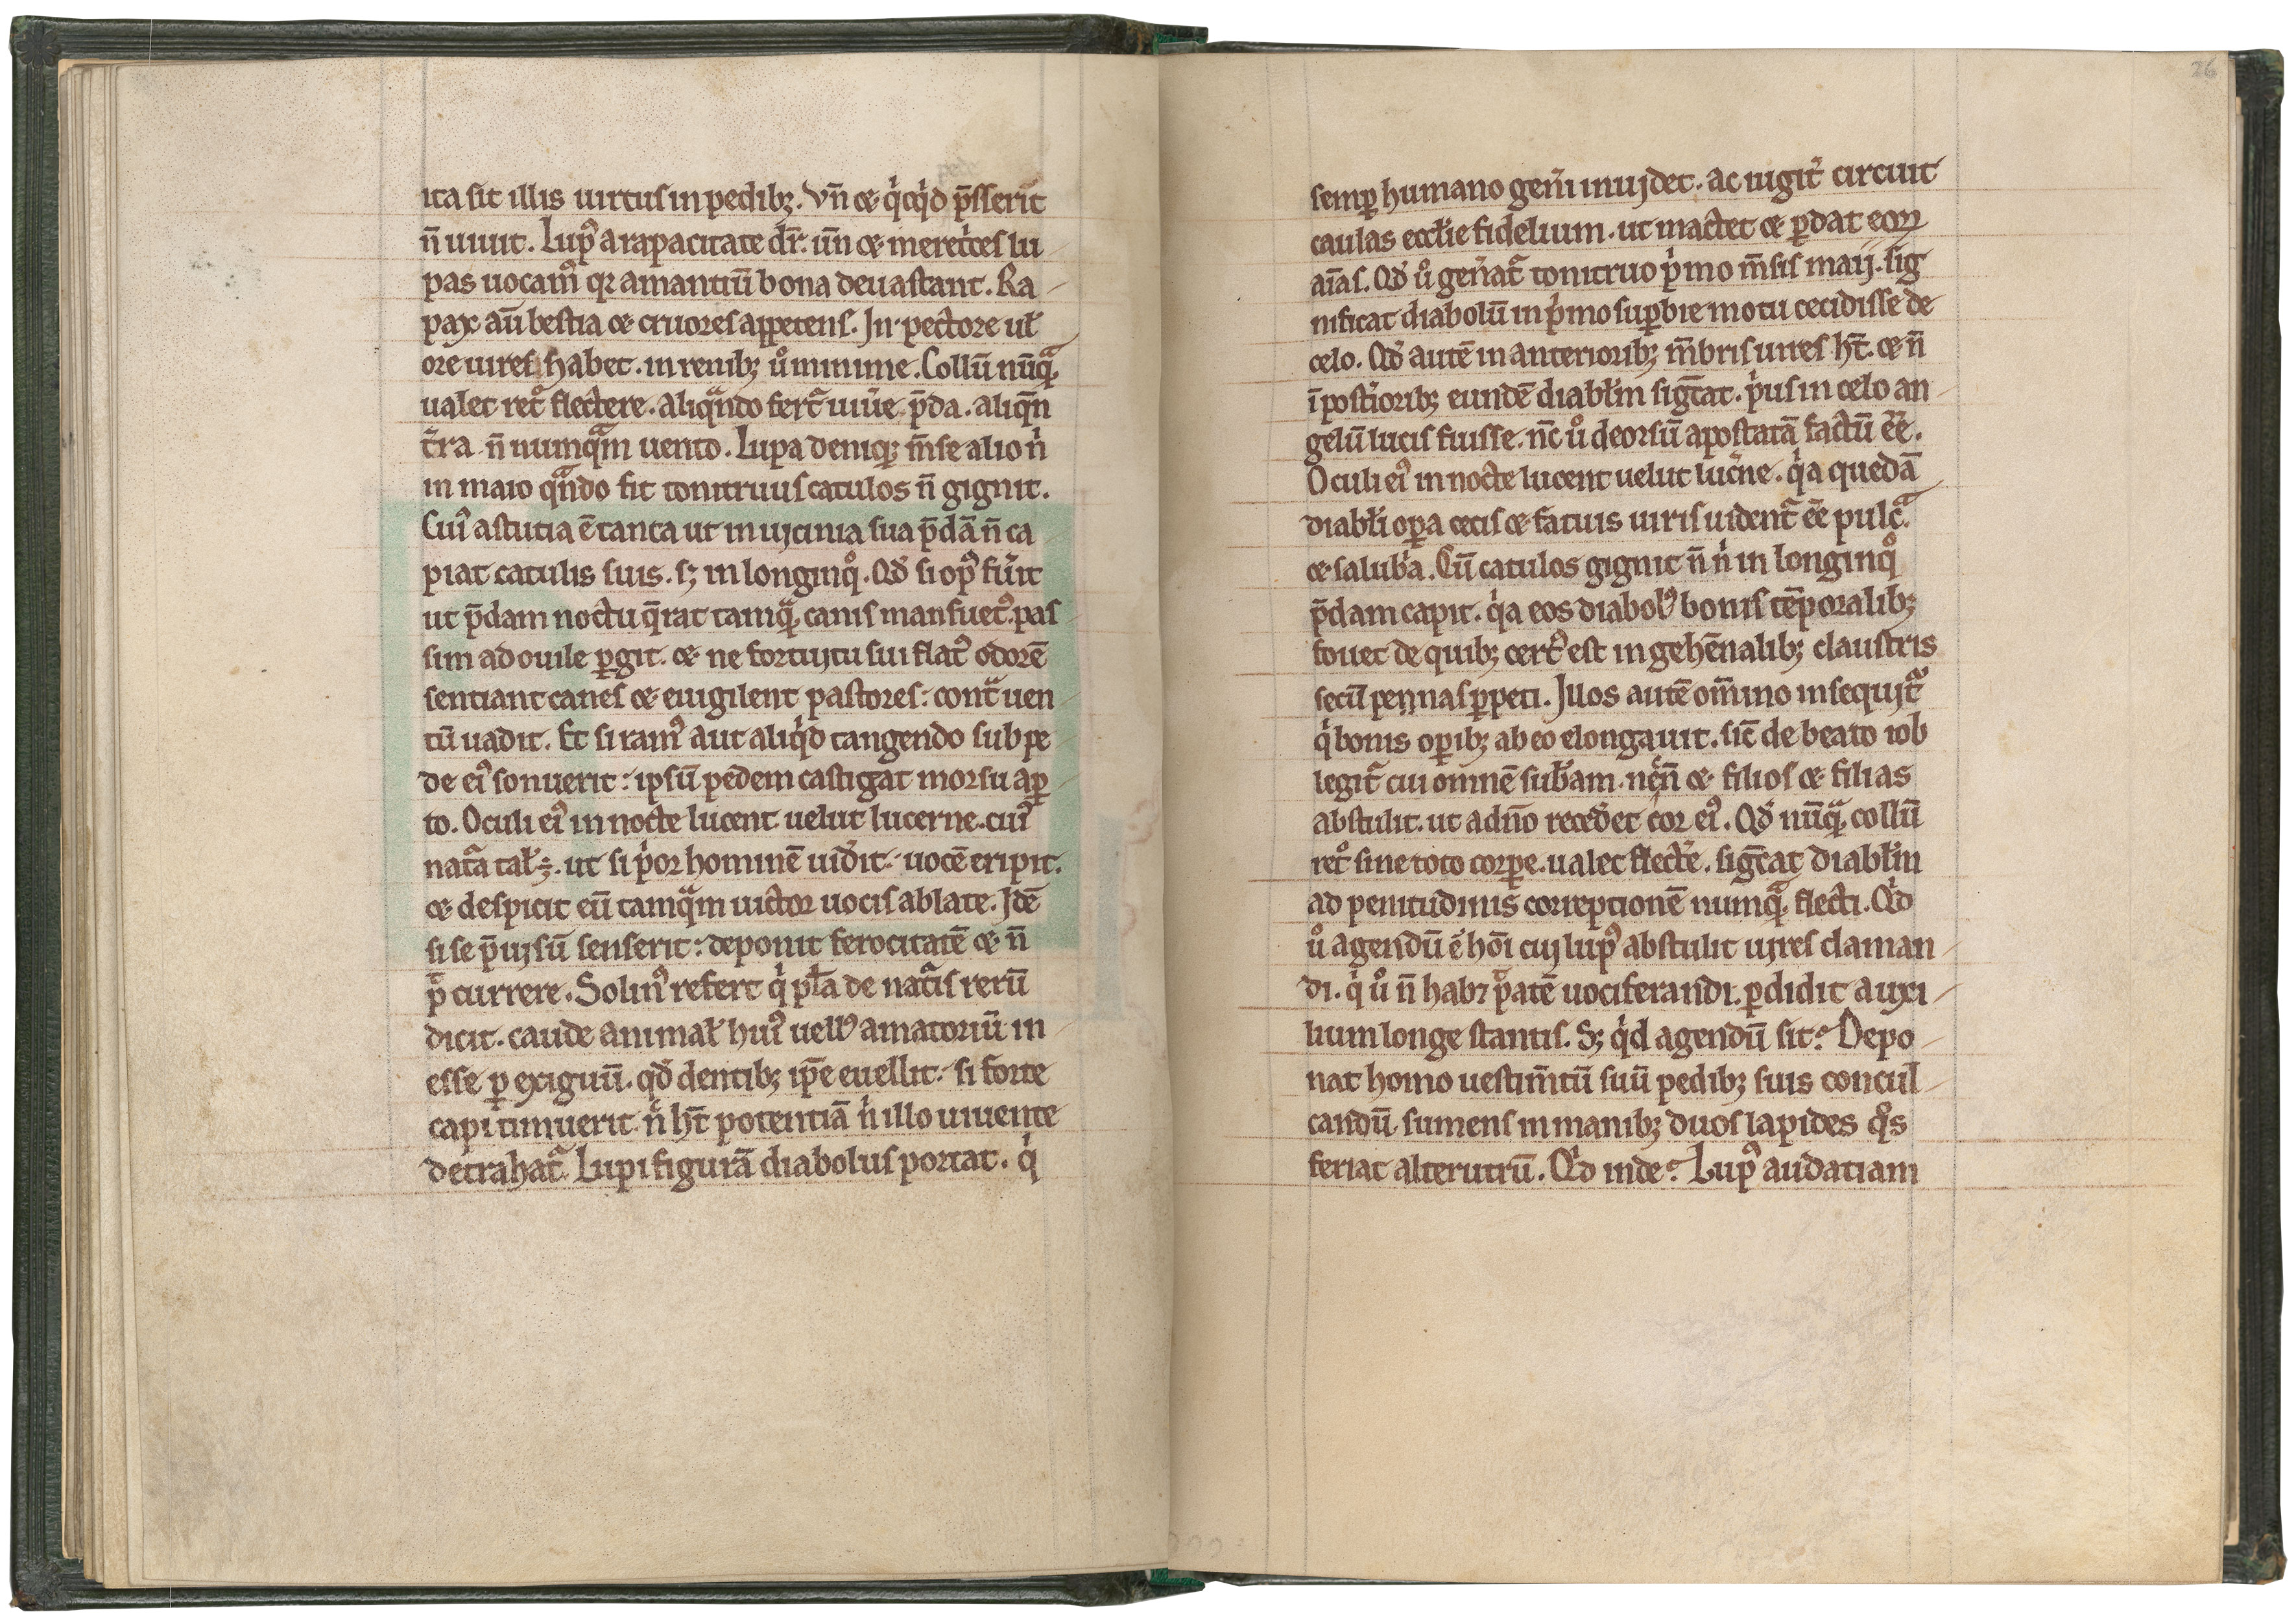 ita sit illis uirtus in pedibꝫ. Vn̄ ⁊ q̇cq̇d p̄sserit
n̄ uiuit. Lupꝰ a rapacitate dr̄. un̄ ⁊ meret̾ces lu
pas uocamꝰ qr amantiū bona deuastant. Ra
pax aū bestia ⁊ cruores appetens. In pectore ul̵
ore uires habet. in renibꝫ u̾o minime. Collū nūqͣ
ualet ret͛ flectere. Aliqͣndo fert᷑ uiu̾e p̄da. aliqn̄
t̾ra n̄ numqͣm uento. Lupa deniqꝫ m̄se alio n̾
in maio qͣndo fit tonitruus catulos n̄ gignit.
Cuiꝰ astutia ē tanta ut in uicinia sua p̄dā n̄ ca
piat catulis suis. sꝫ in longinqͦ. Qd̾ si opꝰ fu̾it
ut p̄dam noctu q̄rat tamqͣ canis mansuetꝰ. pas
sim ad ouile ꝑgit. ⁊ ne fortuytu sui flatꝰ odorē
sentiant canes ⁊ euigilent pastores. contͣ uen
tū uadit. Et si ramꝰ aut aliq̇d tangendo sub pe
de eiꝰ sonuerit. ipsū pedem castigat morsu aꝑ
to. Oculi eiꝰ in nocte lucent uelut lucerne. cuiꝰ
natͣa tal̵ ē. ut si p̾or hominē uid̾it. uocē eripit.
⁊ despicit eū tamqͣm uictor uocis ablate. Idē
si se p̄uisū senserit. deponit ferocitatē ⁊ n̄
pͦt currere. Solinꝰ refert q̇ pl̵a de natͣis rerū
dicit. caude animal̵ huiꝰ uellꝰ amatoriū in
esse ꝑ exiguū. qd̾ dentibꝫ ip̄e euellit. si forte
capi timuerit. n̾ ht̄ potentiā n̾ illo uiuente
detrahat᷑. Lupi figurā diabolus portat. q̇
26
semꝑ humano gen̾i inuidet. ac iugit̾ circuit
caulas eccl̵ie fidelium. ut mactet ⁊ ꝑdat eoꝝ
aīas. Qd̾ u̾o gen̾at᷑ tonitruo p̾mo m̄sis maij. sig
nificat diabolū in p̾mo suꝑbie motu cecidisse de
celo. Qd̾ autē in anterioribꝫ m̄bris uires ht̄. ⁊ n̄
ī post̾ioribꝫ eundē diabl̵m sigt̄at. p̾us in celo an
gelū lucis fuisse. nc̄ u̾o deorsū apostatā factū eē.
Oculi eiꝰ in nocte lucent uelut luc̾ne. q̇a quedā
diabl̵i oꝑa cecis ⁊ fatuis uiris uident᷑ eē pulcͣ
⁊ salub̾a. Cū catulos gignit n̄ n̾ in longinqͦ
p̄dam capit. q̇a eos diabolꝰ bonis tēporalibꝫ
fouet de quibꝫ certꝰ est in gehēnalibꝫ claustris
secū pennas ꝑpeti. Illos autē om̄ino insequit᷑
q̇ bonis oꝑibꝫ ab eo elongauit. sic̄ de beato iob
legit᷑ cui omnē sub̄am. nc̾n̄ ⁊ filios ⁊ filias
abstulit. ut a dn̄o reced̾et cor eiꝰ. Qd̾ nūqͣ collū
ret͛ sine toto corꝑe. ualet flect̾e. sigt̄at diabl̵m
ad penitudinis correptionē numqͣ flecti. Qd̾
u̾o agendū ē hōi cui lupꝰ abstulit uires claman
di. q̇ u̾o n̄ habꝫ pͦtatē uociferandi. ꝑdidit auxi
lium longe stantis. Sꝫ q̇d agendū sit? Depo
nat homo uestim̄tū suū pedibꝫ suis concul
candū sumens in manibꝫ duos lapides qͦs
feriat alterutrū. Qd̾ inde? Lupꝰ audatiam